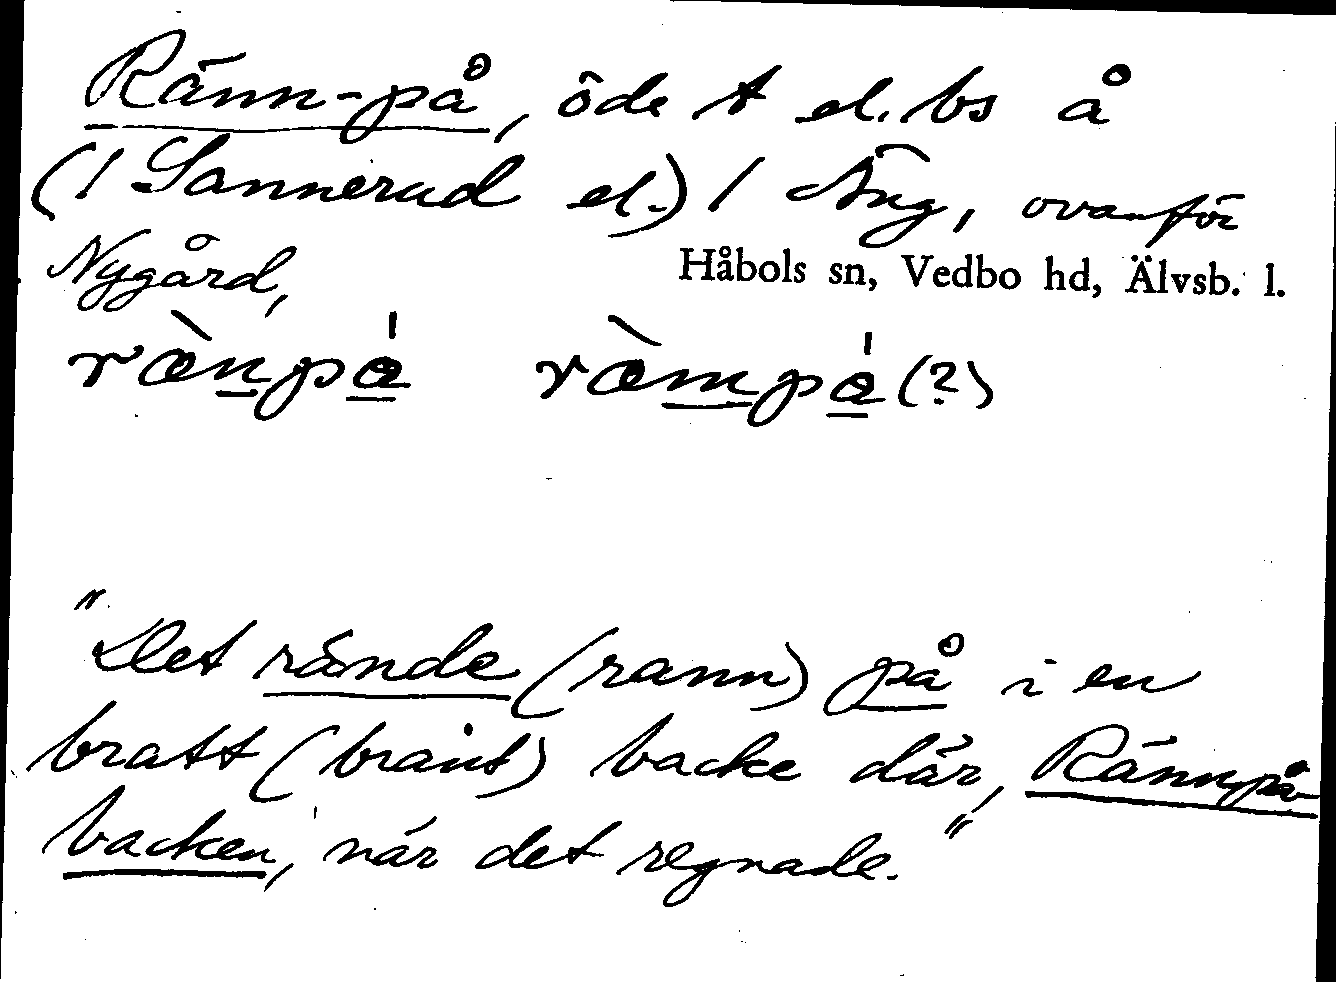 Ränn-på, öde t el. bs å
(/ Sannerud el.) / Äng, ovanför
Nygård,
Håbols sn, Vedbo hd, Älvsb. l.
ræ̀npá ræ̀mpá (?)
"Det rände (rann) på i en
bratt (brant) backe där, Rännpå-
backen, när det regnade."